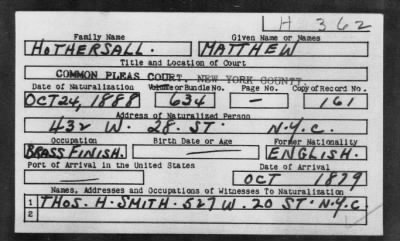 H 362
Family Name Given Name or Names
HOTHERSALL. MATTHEW
Title and Location of Court
COMMON PLEAS COURT, NEW YORK COUNTY.
Date of Naturalization Volume or Bundle No. Page No. Copy of Record No.
OCT 24, 1888 634 — 161
Address of Naturalized Person
432 W. 28. ST. N.Y.C.
Occupation Birth Date or Age Former Nationality
BRASS FINISH. — ENGLISH.
Port of Arrival in the United States Date of Arrival
— OCT 1879
Names, Addresses and Occupations of Witnesses To Naturalization
1 THOS. H. SMITH. 527 W. 20 ST. N.Y.C.
2